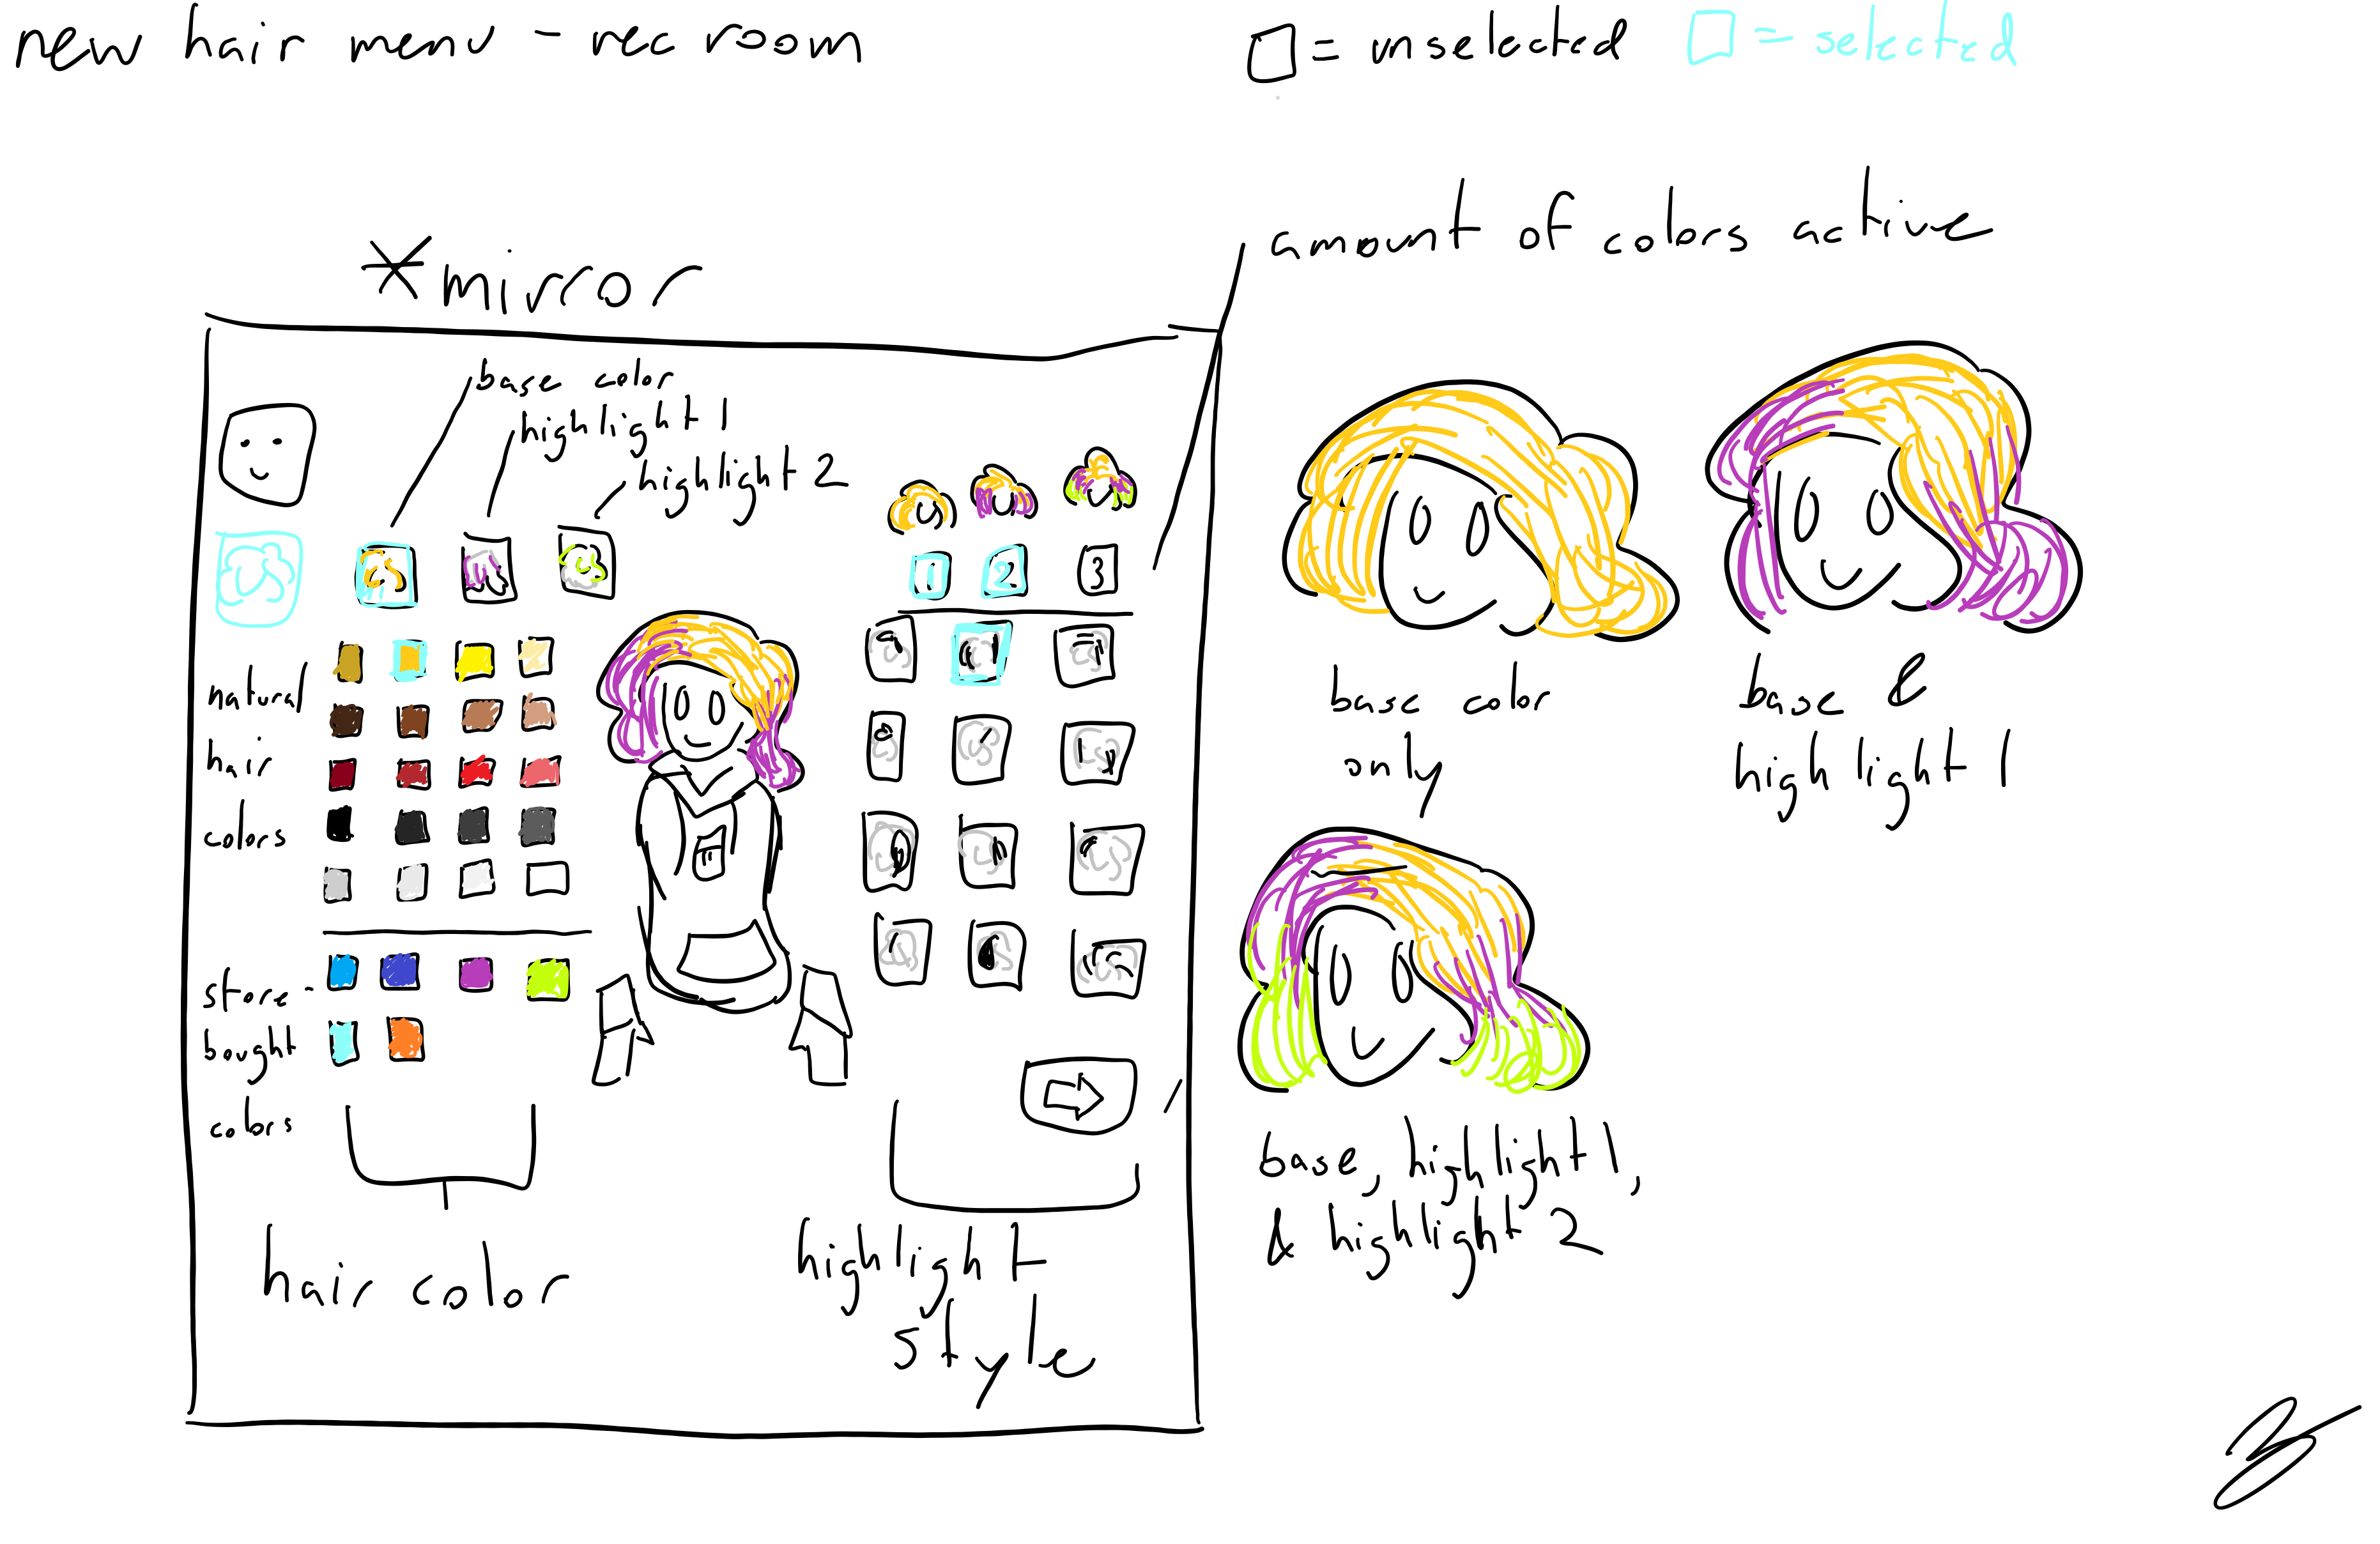 new hair menu - rec room
= unselected
= selected
amount of colors active
*mirror
base color
highlight 1
highlight 2
1 2 3
natural
hair
colors
store-
bought
colors
hair color
highlight
style
base color
only
base &
highlight 1
base, highlight 1,
& highlight 2